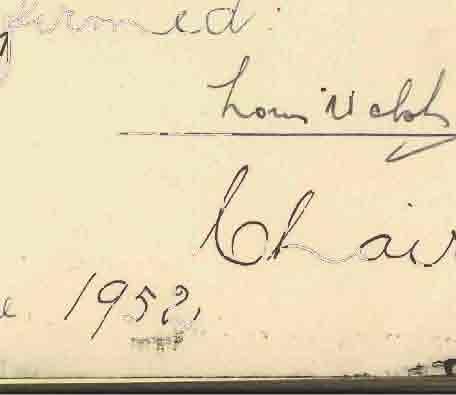 firmed:
Louis
Chair
e. 1952.